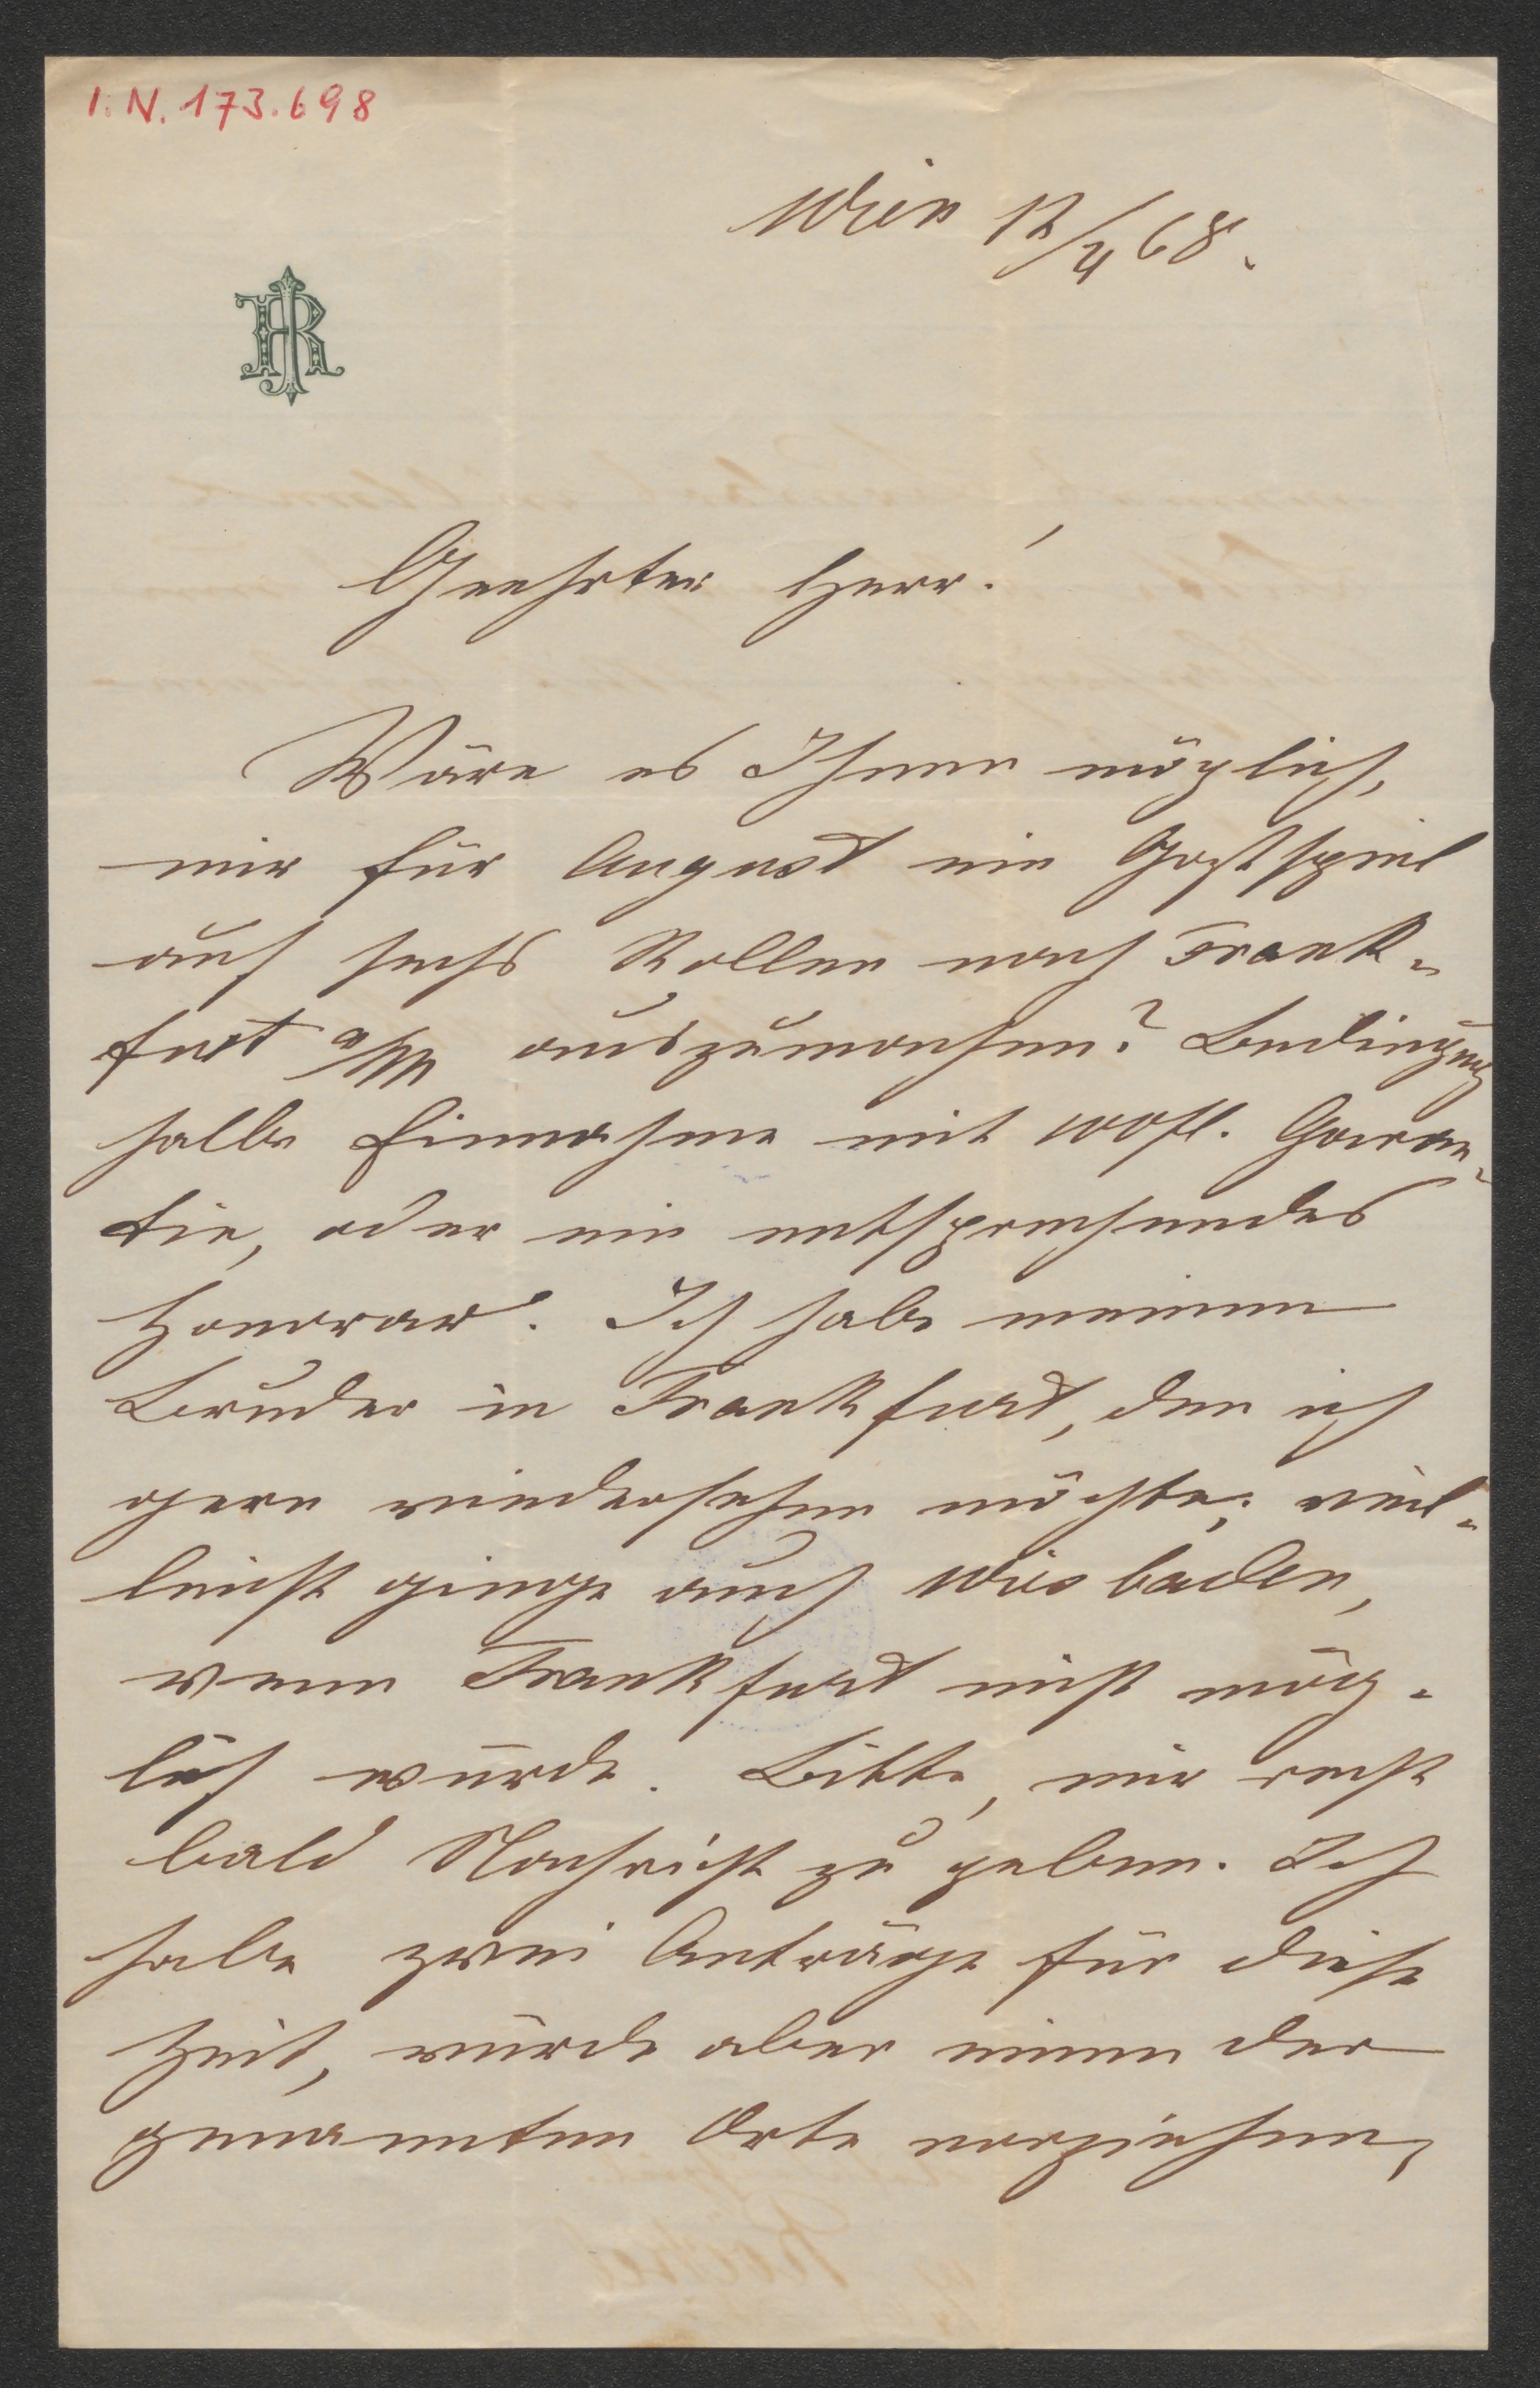 I. N. 173.698
Wien 12/4 68.
Geehrter Herr!
Wäre es Ihnen möglich,
mir für August ein Gastspiel
auf sechs Rollen nach Frank-
furt a/M auszumachen? Bedingung
halbe Einnahme mit 100 fl. Garan-
tie, oder ein entsprechendes
Honorar. Ich habe meinen
Bruder in Frankfurt, den ich
gern wiedersehen möchte; viel-
leicht ginge auch Wiesbaden,
wenn Frankfurt nicht mög-
lich würde. Bitte, mir recht
bald Nachricht zu geben. Ich
habe zwei Anträge für diese
Zeit, würde aber einen der
genannten Orte vorziehen,